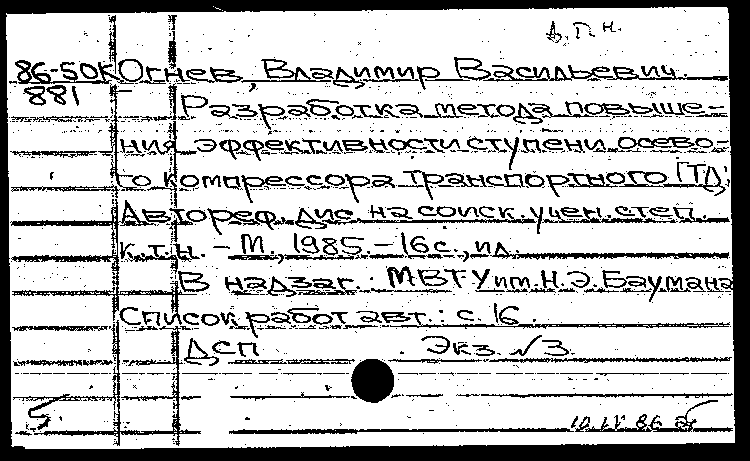 А.П.Н.
86-50К Огнев, Владимир Васильевич.
881 Разработка метода повыше-
ния эффективности ступени осево-
го компрессора транспортного ГТД:
Автореф. дис. на соиск. учен. степ.
к.т.н. – М., 1985. – 16 с., ил.
В надзаг.: МВТУ им. Н.Э. Баумана
Список работ авт.: с. 16.
ДСП Экз. №3.
5. 10.IV 86